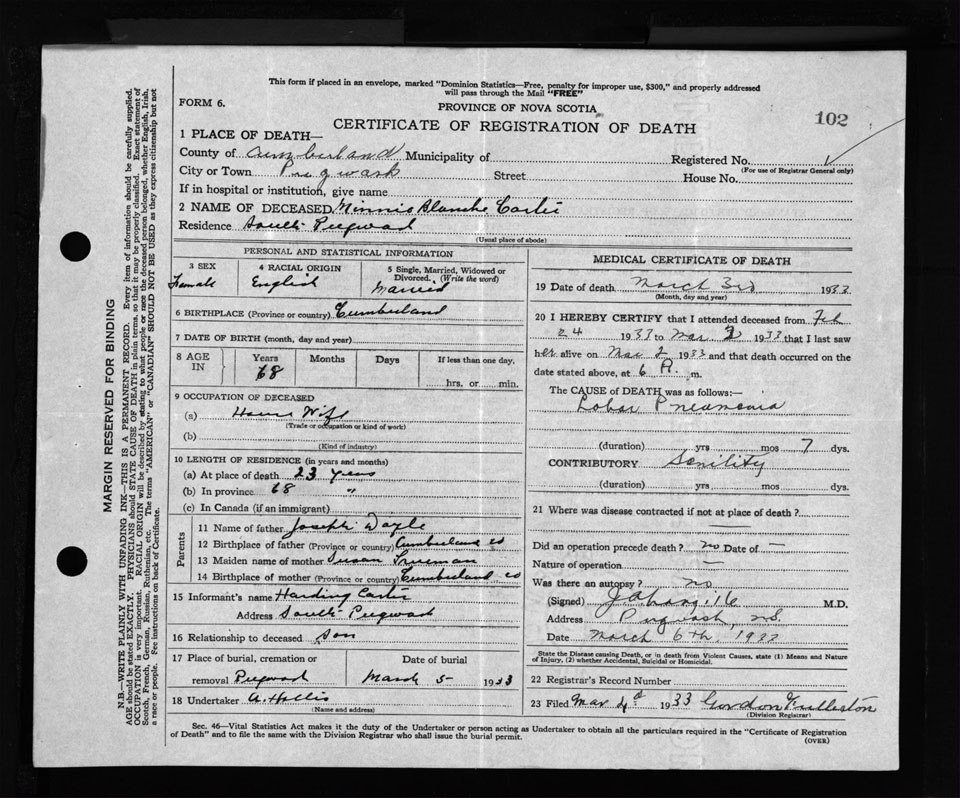 This form if placed in an envelope, marked "Dominion Statistics—Free, penalty for improper use, $300," and properly addressed
will pass through the Mail "FREE"
FORM 6.
PROVINCE OF NOVA SCOTIA
102
CERTIFICATE OF REGISTRATION OF DEATH
1 PLACE OF DEATH—
County of Cumberland Municipality of Registered No.
(For use of Registrar General only)
City or Town Pugwash Street House No.
If in hospital or institution, give name
2 NAME OF DECEASED Minnie Blanche
Residence South Pugwash
(Usual place of abode)
PERSONAL AND STATISTICAL INFORMATION
3 SEX 4 RACIAL ORIGIN 5 Single, Married, Widowed or
Divorced. (Write the word)
Female English Married
6 BIRTHPLACE (Province or country) Cumberland
7 DATE OF BIRTH (month, day and year)
8 AGE IN Years Months Days If less than one day,
68 hrs. or min.
9 OCCUPATION OF DECEASED
(a) House Wife
(Trade or occupation or kind of work)
(b)
(Kind of industry)
10 LENGTH OF RESIDENCE (in years and months)
(a) At place of death 23 years
(b) In province 68 "
(c) In Canada (if an immigrant)
Parents
11 Name of father Joseph
12 Birthplace of father (Province or country) Cumberland co
13 Maiden name of mother Susan
14 Birthplace of mother (Province or country) Cumberland co
15 Informant's name Harding
Address South Pugwash
16 Relationship to deceased son
17 Place of burial, cremation or Date of burial
removal Pugwash March 5 1933
18 Undertaker A. Hollis
(Name and address)
MEDICAL CERTIFICATE OF DEATH
19 Date of death March 3rd 1933
(Month, day and year)
20 I HEREBY CERTIFY that I attended deceased from Feb
24 1933 to Mar 2 1933 that I last saw
her alive on Mar 2 1933 and that death occurred on the
date stated above, at 6 A. m.
The CAUSE of DEATH was as follows:—
Lobar Pneumonia
(duration) yrs mos 7 dys.
CONTRIBUTORY Senility
(duration) yrs mos dys.
21 Where was disease contracted if not at place of death?
—
Did an operation precede death? no Date of —
Nature of operation —
Was there an autopsy? no
(Signed) M.D.
Address Pugwash, N.S.
Date March 6th, 1933
State the Disease causing Death, or in death from Violent Causes, state (1) Means and Nature
of Injury, (2) whether Accidental, Suicidal or Homicidal.
22 Registrar's Record Number
23 Filed Mar 1933 Gordon
(Division Registrar)
Sec. 46—Vital Statistics Act makes it the duty of the Undertaker or person acting as Undertaker to obtain all the particulars required in the "Certificate of Registration
of Death" and to file the same with the Division Registrar who shall issue the burial permit.
(OVER)
MARGIN RESERVED FOR BINDING
N.B.—WRITE PLAINLY WITH UNFADING INK—THIS IS A PERMANENT RECORD. Every item of information should be carefully supplied.
AGE should be stated EXACTLY. PHYSICIANS should STATE CAUSE OF DEATH in plain terms, so that it may be properly classified. Exact statement of
OCCUPATION is very important. RACIAL ORIGIN will be described by stating to what people or race the deceased person belonged, whether English, Irish,
Scotch, French, German, Russian, Ruthenian, etc. The terms "AMERICAN" or "CANADIAN" SHOULD NOT BE USED as they express citizenship but not
a race or people. See instructions on back of Certificate.